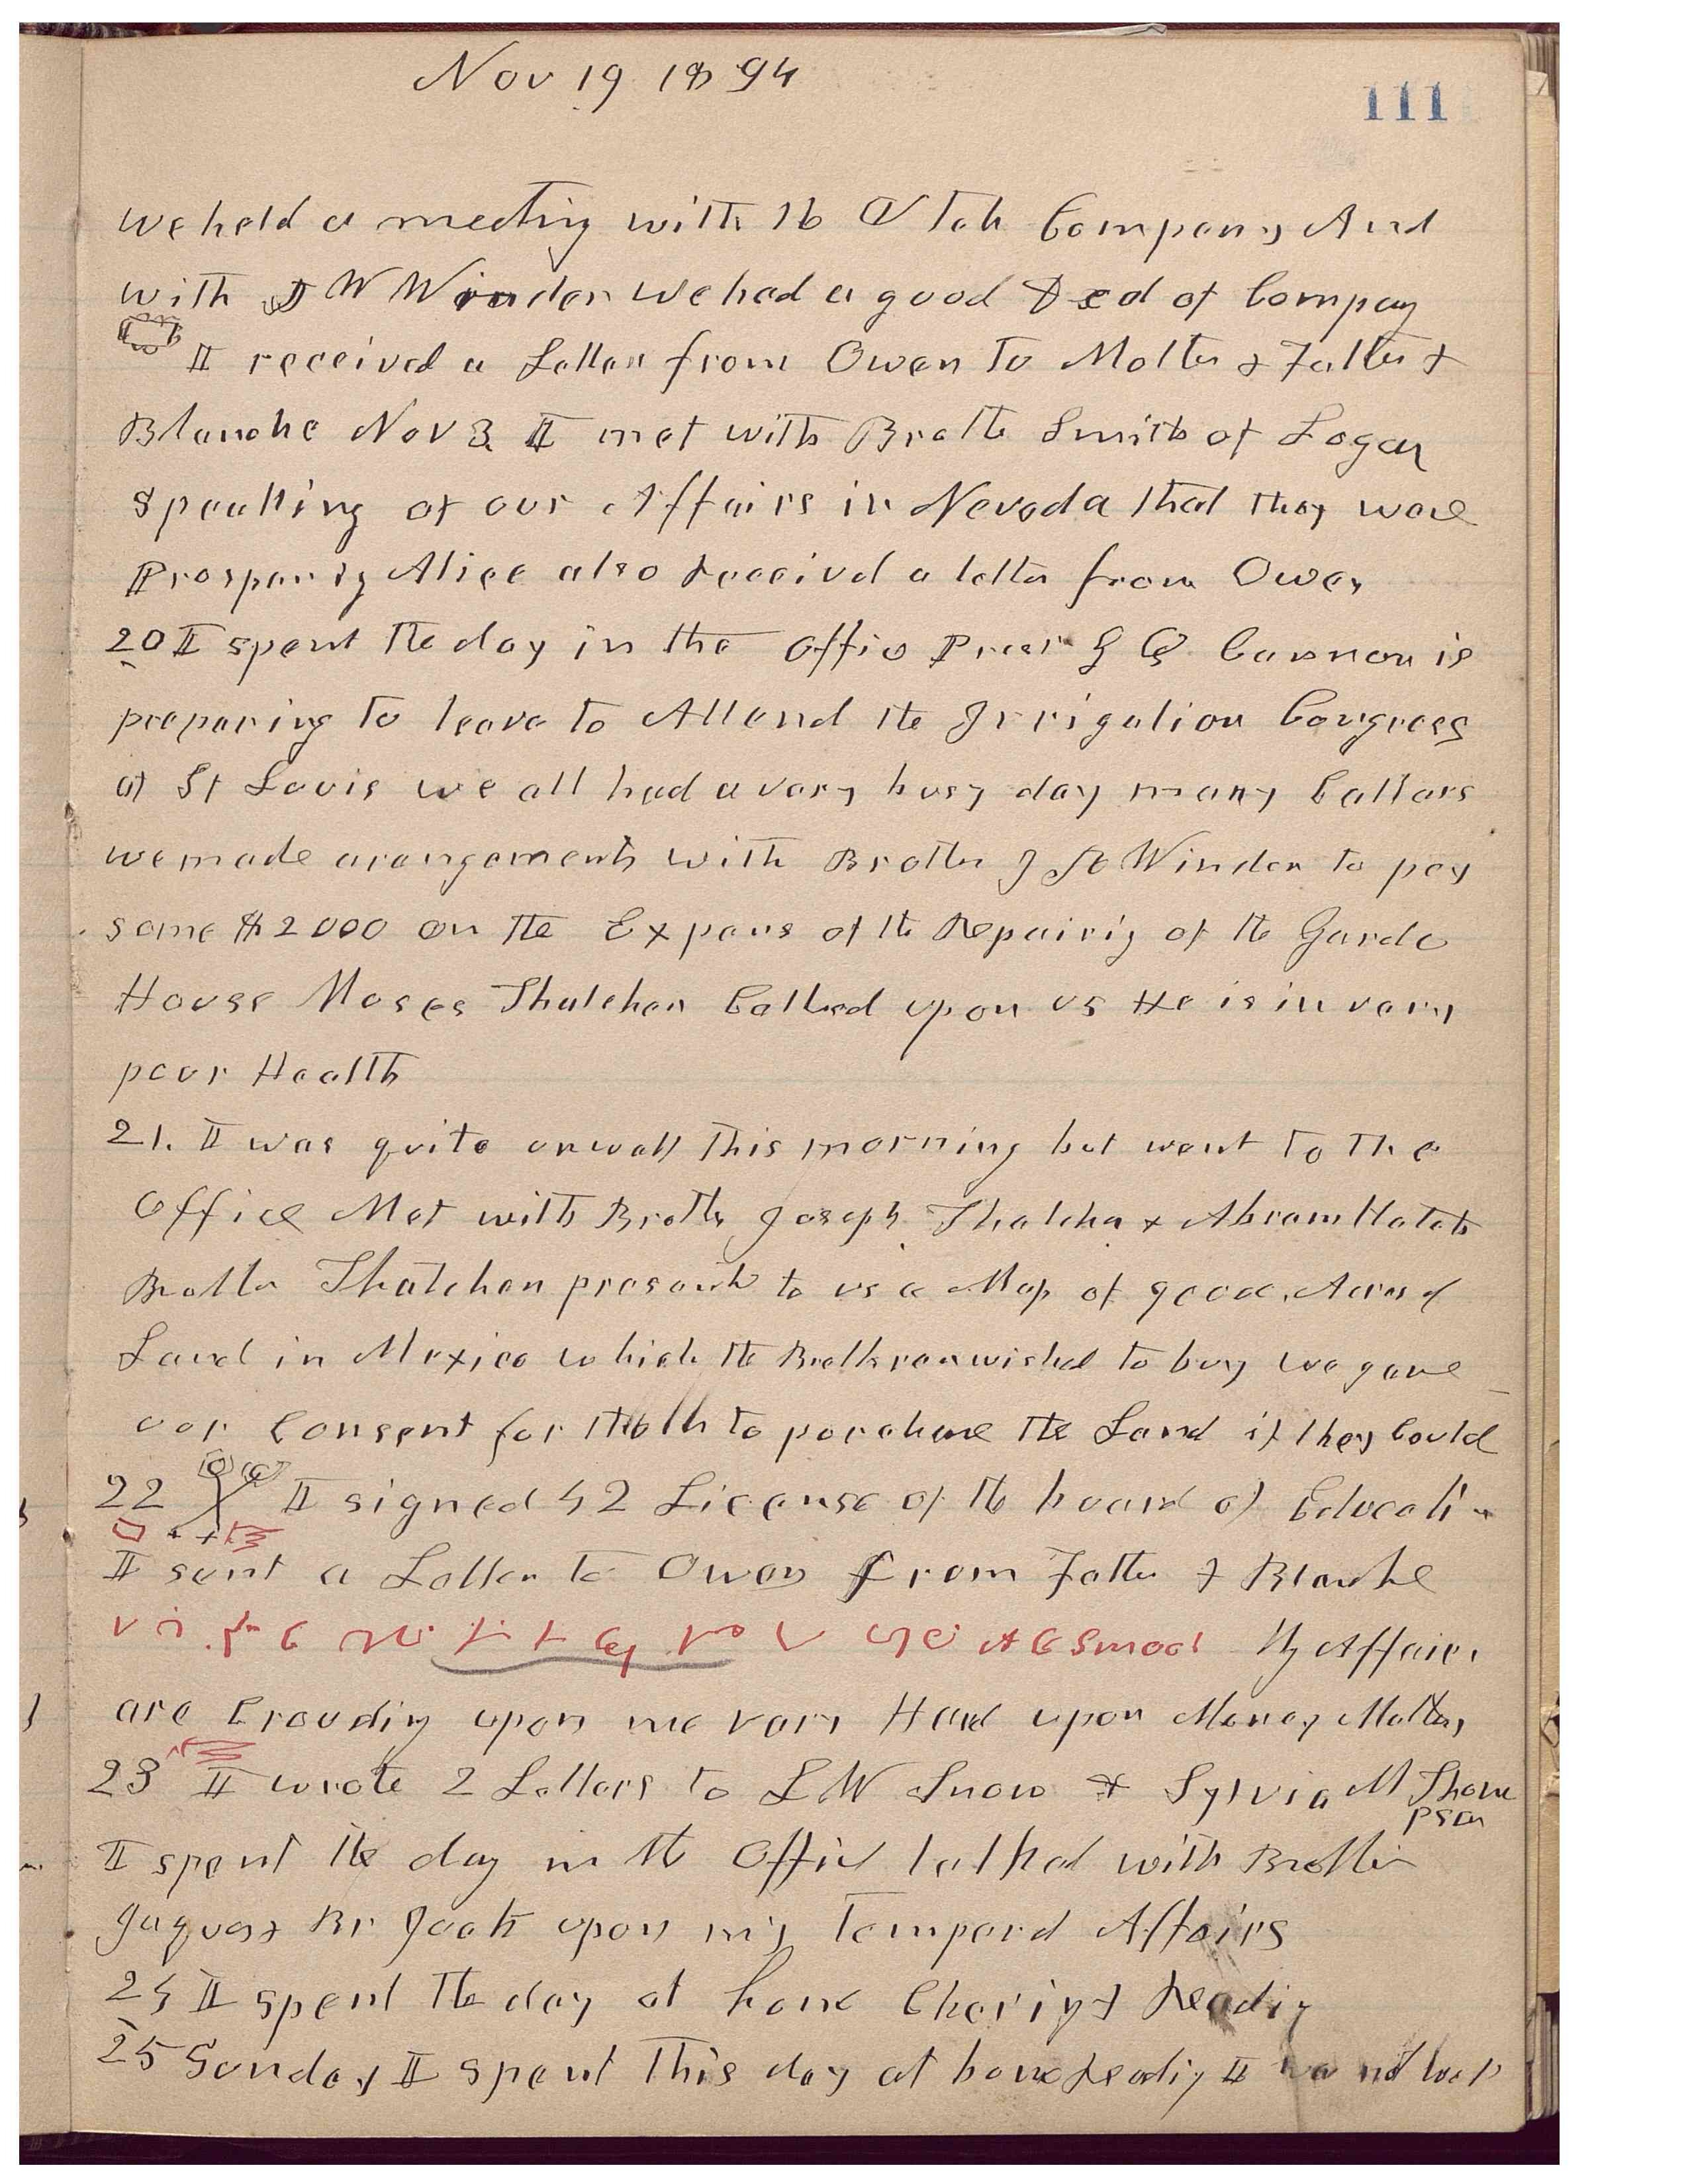 Nov 19 1894
111
we held a meeting with 16 Utah Company And
with J W Winder we had a good deal of Compay
I received a Letter from Owen to Mother & Father &
Blanche Nov 3 I met with Brother Smith of Logan
Speaking of our Affairs in Nevada that they ware
Prospering Alice also received a letter from Owen
20 I spent the day in the office Presdt G Q Cannon is
preparing to leave to Attend the Irrigation Congress
at St Louis we all had a vary busy day many Callars
we made arangements with Brother J R Winder to pay
some $2000 on the Expens of the Repairing of the Garde
House Moses Thatcher Called upon us He is in vary
poor Health
21. I was quite unwell this morning but went to the
Office Met with Brother Joseph Thatcher & Abram Hatch
Brother Thatcher presented to us a Map of Acres of
Land in Mexico which the Brethren wished to buy we gave
our Consent for them to purchase the Land if they Could
22 I signed 42 License of the board of Education
I sent a Letter to Owen from Father & Blanche
My Affairs
are Crouding upon me vary Hard upon Money Matters
23 I wrote 2 Letters to L W Snow & Sylvia M Thom
pson
I spent the day in the Office talked with Brother
Jaques & Br Jack upon my Temporal Affairs
24 I spent the day at home Choring & Reading
25 Sunday I spent this day at home Reading I was not well